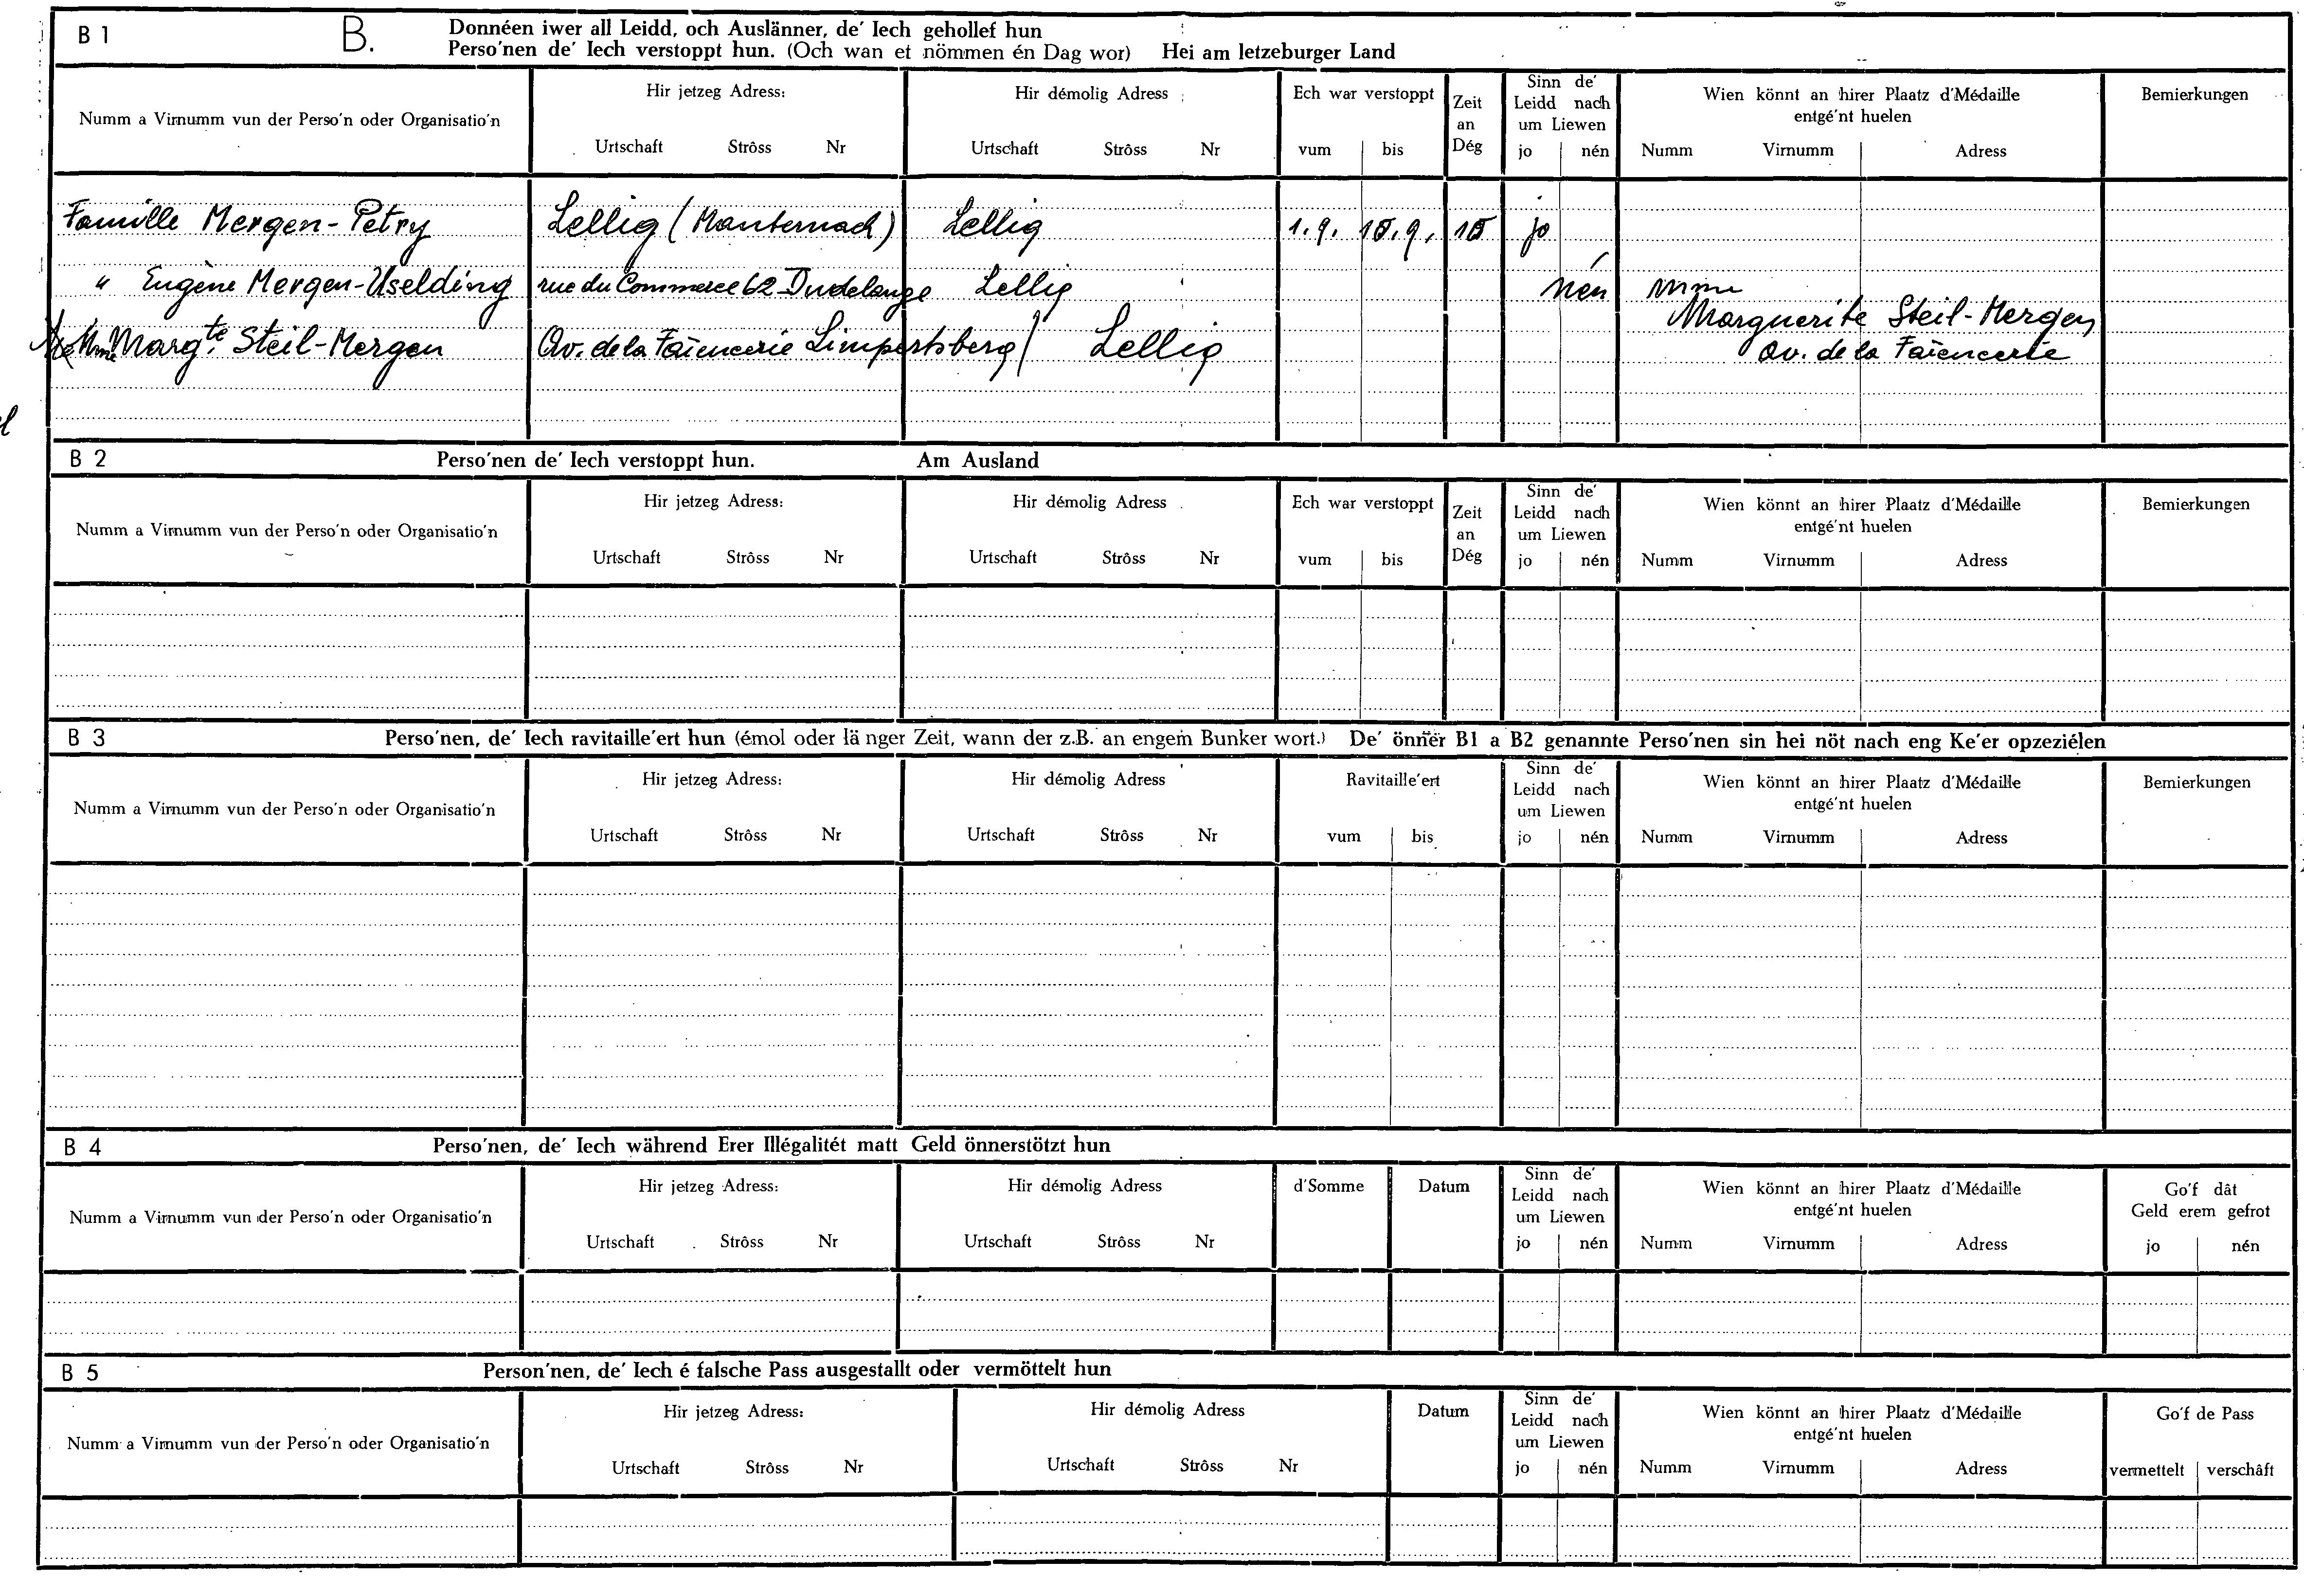 B 1 B. Donnéen iwer all Leidd, och Auslänner, de' Iech gehollef hun
Perso'nen de' Iech verstoppt hun. (Och wan et nömmen én Dag wor) Hei am letzeburger Land
Numm a Virnumm vun der Perso'n oder Organisatio'n
Hir jetzeg Adress:
Urtschaft Strôss Nr
Hir démolig Adress
Urtschaft Strôss Nr
Ech war verstoppt
vum bis
Zeit
an
Dég
Sinn de'
Leidd nach
um Liewen
jo nén
Wien könnt an hirer Plaatz d'Médaille
entgé'nt huelen
Numm Virnumm Adress
Bemierkungen
Famille Mergen-Petry Lellig (Manternach) Lellig 1.9. 15.9. 15 jo
" Eugène Mergen-Uselding rue du Commerce 62 Dudelange Lellig nén Mme
Marguerite Steil-Mergen
Mme Margte. Steil-Mergen Av. de la Faïencerie Limpertsberg / Lellig Av. de la Faïencerie
B 2 Perso'nen de' Iech verstoppt hun. Am Ausland
Numm a Virnumm vun der Perso'n oder Organisatio'n
Hir jetzeg Adress:
Urtschaft Strôss Nr
Hir démolig Adress
Urtschaft Strôss Nr
Ech war verstoppt
vum bis
Zeit
an
Dég
Sinn de'
Leidd nach
um Liewen
jo nén
Wien könnt an hirer Plaatz d'Médaille
entgé'nt huelen
Numm Virnumm Adress
Bemierkungen
B 3 Perso'nen, de' Iech ravitaille'ert hun (émol oder länger Zeit, wann der z.B. an engem Bunker wort.) De' önner B1 a B2 genannte Perso'nen sin hei nöt nach eng Ke'er opzeziélen
Numm a Virnumm vun der Perso'n oder Organisatio'n
Hir jetzeg Adress:
Urtschaft Strôss Nr
Hir démolig Adress
Urtschaft Strôss Nr
Ravitaille'ert
vum bis
Sinn de'
Leidd nach
um Liewen
jo nén
Wien könnt an hirer Plaatz d'Médaille
entgé'nt huelen
Numm Virnumm Adress
Bemierkungen
B 4 Perso'nen, de' Iech während Erer Illégalitét matt Geld önnerstötzt hun
Numm a Virnumm vun der Perso'n oder Organisatio'n
Hir jetzeg Adress:
Urtschaft Strôss Nr
Hir démolig Adress
Urtschaft Strôss Nr
d'Somme
Datum
Sinn de'
Leidd nach
um Liewen
jo nén
Wien könnt an hirer Plaatz d'Médaille
entgé'nt huelen
Numm Virnumm Adress
Go'f dât
Geld erem gefrot
jo nén
B 5 Person'nen, de' Iech é falsche Pass ausgestallt oder vermöttelt hun
Numm a Virnumm vun der Perso'n oder Organisatio'n
Hir jetzeg Adress:
Urtschaft Strôss Nr
Hir démolig Adress
Urtschaft Strôss Nr
Datum
Sinn de'
Leidd nach
um Liewen
jo nén
Wien könnt an hirer Plaatz d'Médaille
entgé'nt huelen
Numm Virnumm Adress
Go'f de Pass
vermettelt verschâft